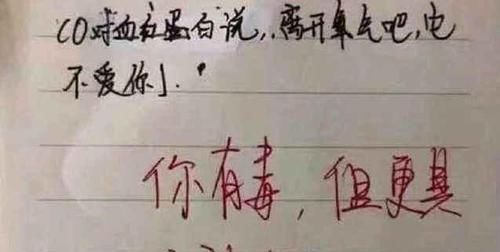 CO对血红蛋白说,离开氧气吧,它
不爱你」.
你有毒,但更具